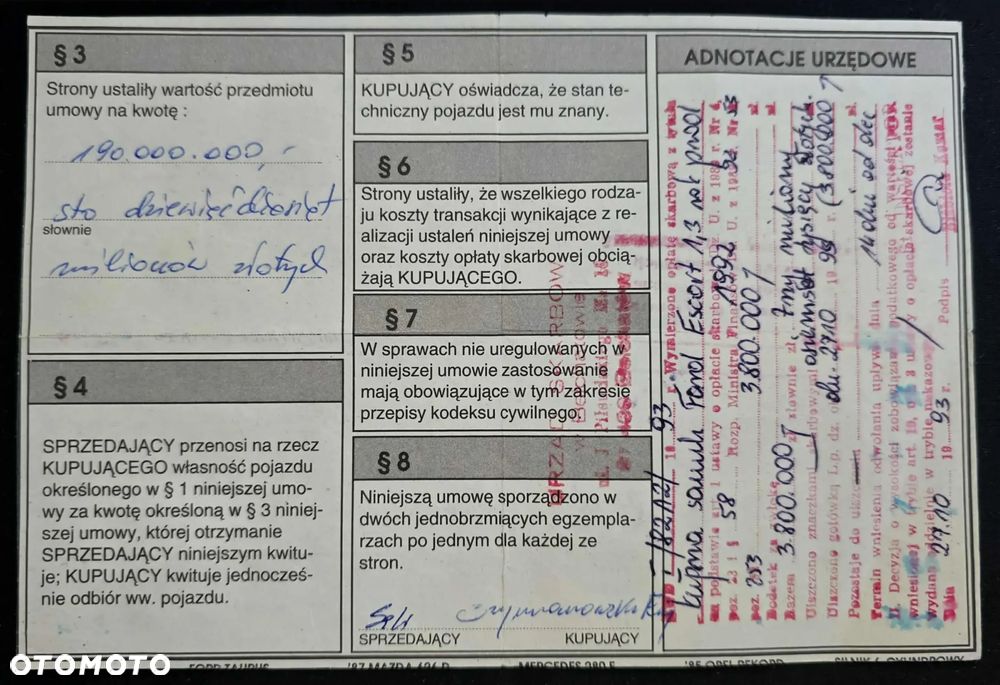 § 3
Strony ustaliły wartość przedmiotu
umowy na kwotę :
190.000.000,-
sto dziewięćdziesiąt
słownie
milionów złotych
§ 4
SPRZEDAJĄCY przenosi na rzecz
KUPUJĄCEGO własność pojazdu
określonego w § 1 niniejszej umo-
wy za kwotę określoną w § 3 niniej-
szej umowy, której otrzymanie
SPRZEDAJĄCY niniejszym kwitu-
je; KUPUJĄCY kwituje jednocześ-
nie odbiór ww. pojazdu.
§ 5
KUPUJĄCY oświadcza, że stan te-
chniczny pojazdu jest mu znany.
§ 6
Strony ustaliły, że wszelkiego rodza-
ju koszty transakcji wynikające z re-
alizacji ustaleń niniejszej umowy
oraz koszty opłaty skarbowej obcią-
żają KUPUJĄCEGO.
§ 7
W sprawach nie uregulowanych w
niniejszej umowie zastosowanie
mają obowiązujące w tym zakresie
przepisy kodeksu cywilnego.
§ 8
Niniejszą umowę sporządzono w
dwóch jednobrzmiących egzempla-
rzach po jednym dla każdej ze
stron.
SPRZEDAJĄCY KUPUJĄCY
ADNOTACJE URZĘDOWE
182121 19 93 r. Wymierzono opłatę skarbową z tytułu
kupna samoch Ford Escort 1,3 rok prod
na podstawie art. 1 ustawy o opłacie skarbowej Dz. U. z 1989 r. Nr 4,
1992
poz. 23 i § 58 Rozp. Ministra Finansów
poz. 253 3.800.000
Podatek za zwłokę zł.
Razem 3.800.000 zł słownie zł. trzy miliony
osiemset tysięcy złotych
Uiszczono znaczkami skarbowymi
Uiszczono gotówką Lp. dz. dn. 27.10 19 93 r. (3.800.000
Pozostaje do uiszcz. zł.
Termin wniesienia odwołania upływa dnia 14 dni od dec
II. Decyzja o wysokości zobowiązania podatkowego od wartości
wniesionej w trybie art. 10, o opłacie skarbowej zostanie
wydana oddzielnie w trybie
Dnia 27.10 19 93 r. Podpis
URZĄD SKARBOWY
OTOMOTO
FORD TAURUS
'87 MAZDA 626 D
MERCEDES 280 E
'85 OPEL REKORD